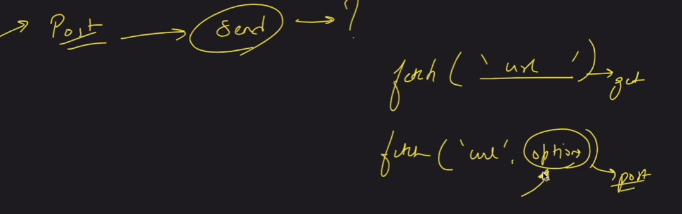 → Post → send → ?
fetch ( ` url ` ) → get
fetch ( 'url', option ) → post